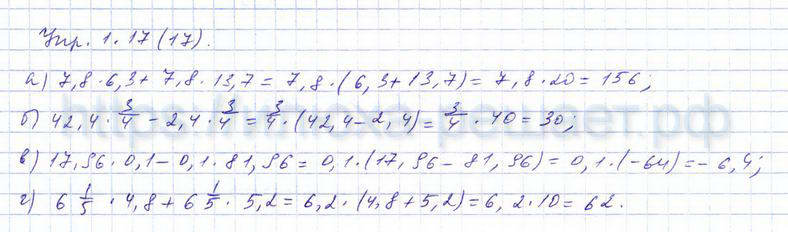 Упр. 1.17(17).
а) 7,8·6,3+7,8·13,7=7,8·(6,3+13,7)=7,8·20=156;
б) 42,4·3/4-2,4·3/4=3/4·(42,4-2,4)=3/4·40=30;
в) 17,96·0,1-0,1·81,96=0,1·(17,96-81,96)=0,1·(-64)=-6,4;
г) 6 1/5·4,8+6 1/5·5,2=6,2·(4,8+5,2)=6,2·10=62.